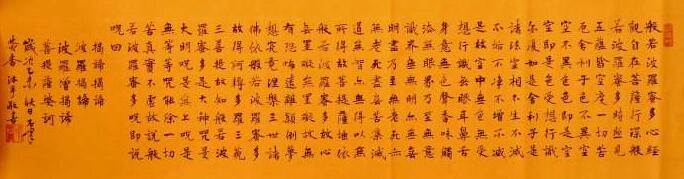 般若波羅蜜多心經
觀自在菩薩行深般
若波羅蜜多時照見
五蘊皆空度一切苦
厄舍利子色不異空
空不異色色即是空
空即是色受想行識
亦復如是舍利子是
諸法空相不生不滅
不垢不淨不增不減
是故空中無色無受
想行識無眼耳鼻舌
身意無色聲香味觸
法無眼界乃至無意
識界無無明亦無無
明盡乃至無老死亦
無老死盡無苦集滅
道無智亦無得以無
所得故菩提薩埵依
般若波羅蜜多故心
無罣礙無罣礙故無
有恐怖遠離顛倒夢
想究竟涅槃三世諸
佛依般若波羅蜜多
故得阿耨多羅三藐
三菩提故知般若波
羅蜜多是大神咒是
大明咒是無上咒是
無等等咒能除一切
苦真實不虛故說般
若波羅蜜多咒即說
咒曰
揭諦揭諦
波羅揭諦
波羅僧揭諦
菩提薩婆訶
歲次乙未秋日
焚香沐手敬書